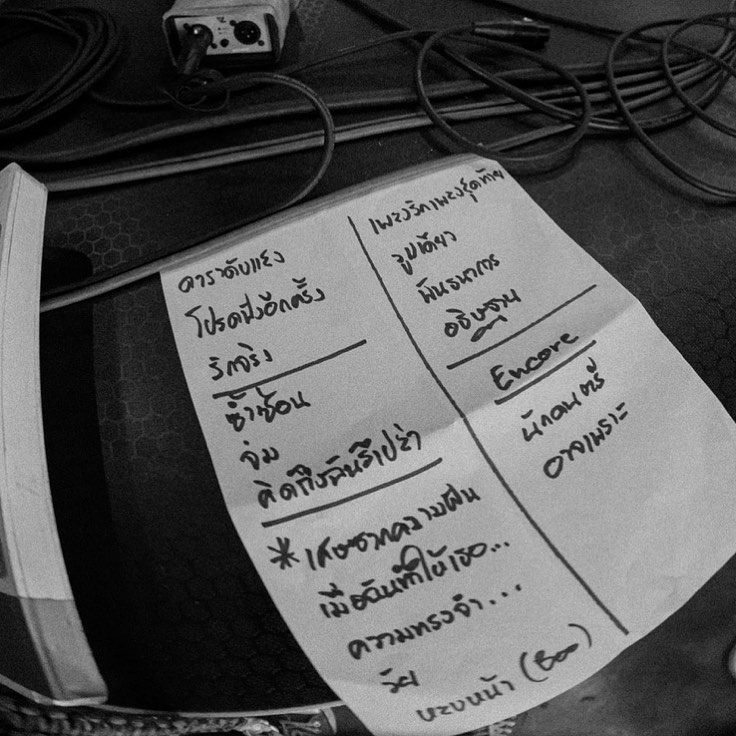 ดาราดับแสง
โปรดฟังอีกครั้ง
รักจริง
ซ้ำซ้อน
จ่ม
คิดถึงฉันรึเปล่า
*เศษซากความฝัน
เมื่อฉันทำให้เธอ...
ความทรงจำ...
วัย
เพลงรักเพลงสุดท้าย
รูปเดียว
พันธนาการ
อธิษฐาน
Encore
นักดนตรี
อาจเพราะ